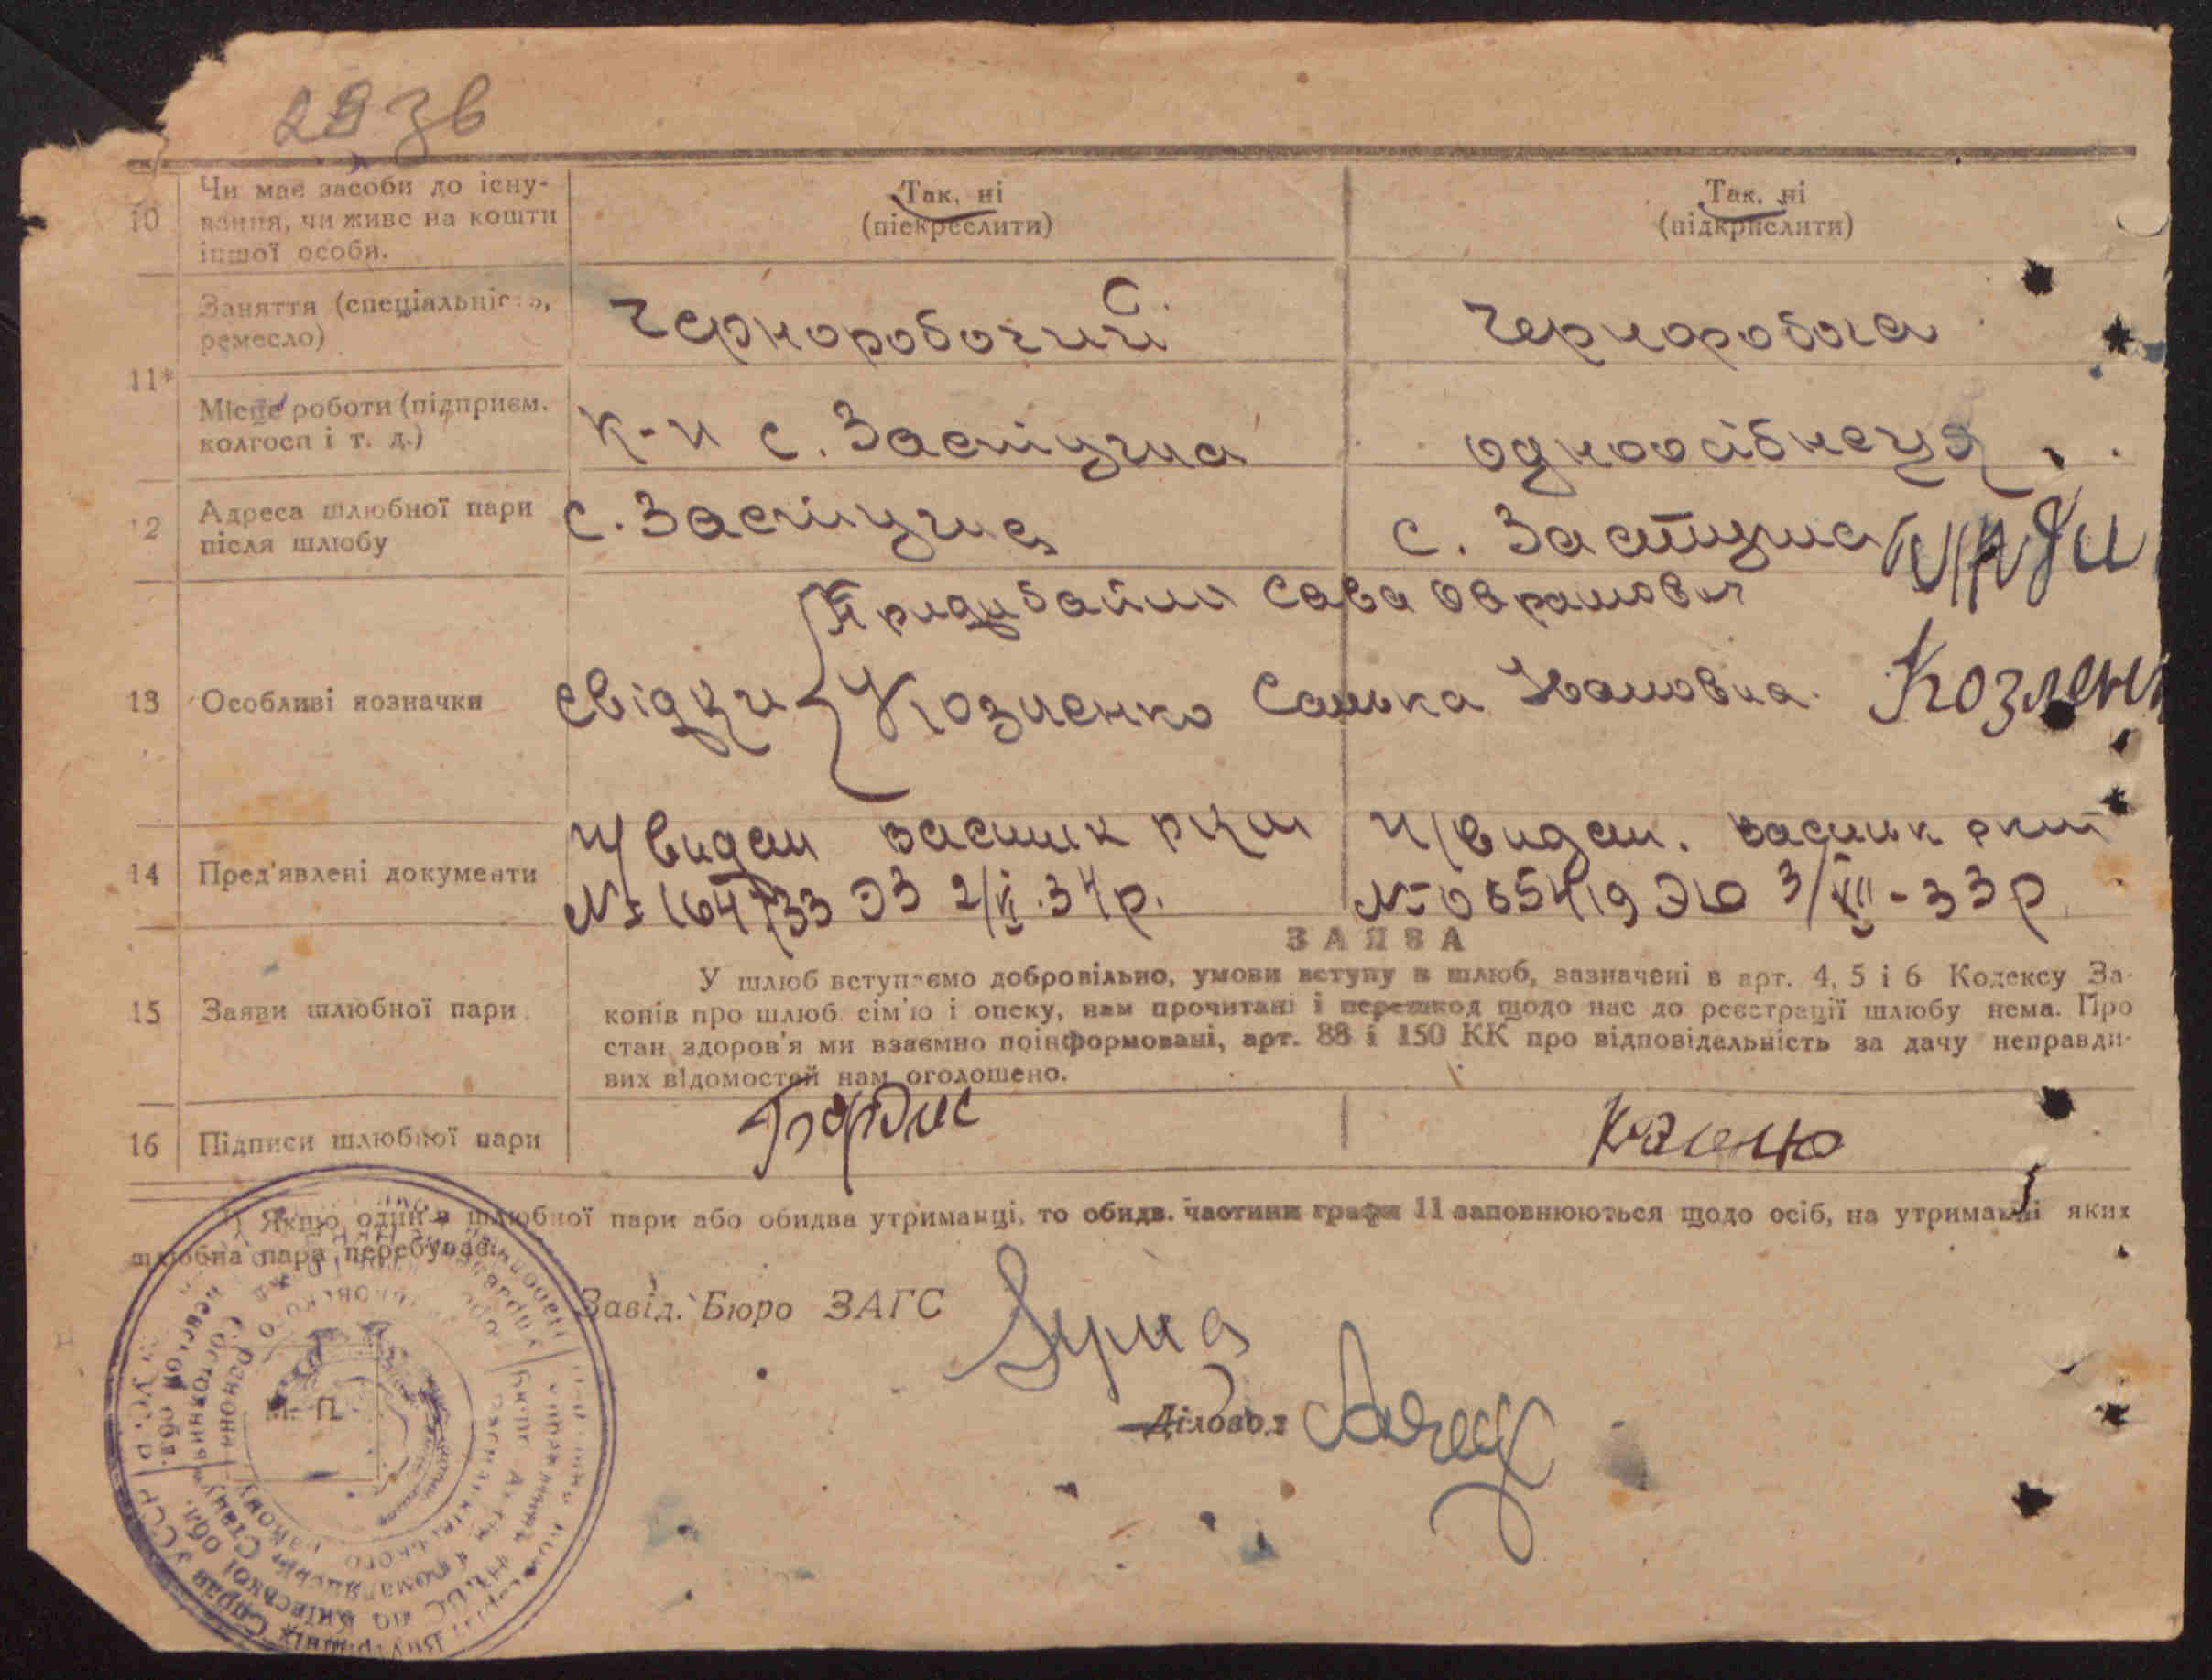 29 зв
10 Чи має засоби до існу-
вання, чи живе на кошти
іншої особи.
Так, ні
(піекреслити)
Так, ні
(підкрислити)
11* Заняття (спеціальність,
ремесло)
Черноробочий
Чернороboча
Місце роботи (підприєм.
колгосп і т. д.)
к-п с. Застугна
одноосібнеця
12 Адреса шлюбної пари
після шлюбу
с. Застугна
с. Застугна
13 Особливі позначки
Свідки
Придибайло Сава Оврамович
Козленко Санька Івановна. Козленк
14 Пред'явлені документи
п/видан васильк ркм
№ 164733 ЭЗ 2/VI.34р.
п/видан. васильк ркм
№ 065419 ЭЮ 3/XII-33р
ЗАЯВА
15 Заяви шлюбної пари
У шлюб вступаємо добровільно, умови вступу в шлюб, зазначені в арт. 4, 5 і 6 Кодексу За-
конів про шлюб. сім'ю і опеку, нам прочитані і перешкод щодо нас до реєстрації шлюбу нема. Про
стан здоров'я ми взаємно поінформовані, арт. 88 і 150 КК про відповідальність за дачу неправди-
вих відомостей нам оголошено.
16 Підписи шлюбної пари
*) Якщо один з шлюбної пари або обидва утриманці, то обидв. частини графи 11 заповнюються щодо осіб, на утриманні яких
шлюбна пара перебуває.
Завід. Бюро ЗАГС
Діловод
М. П.